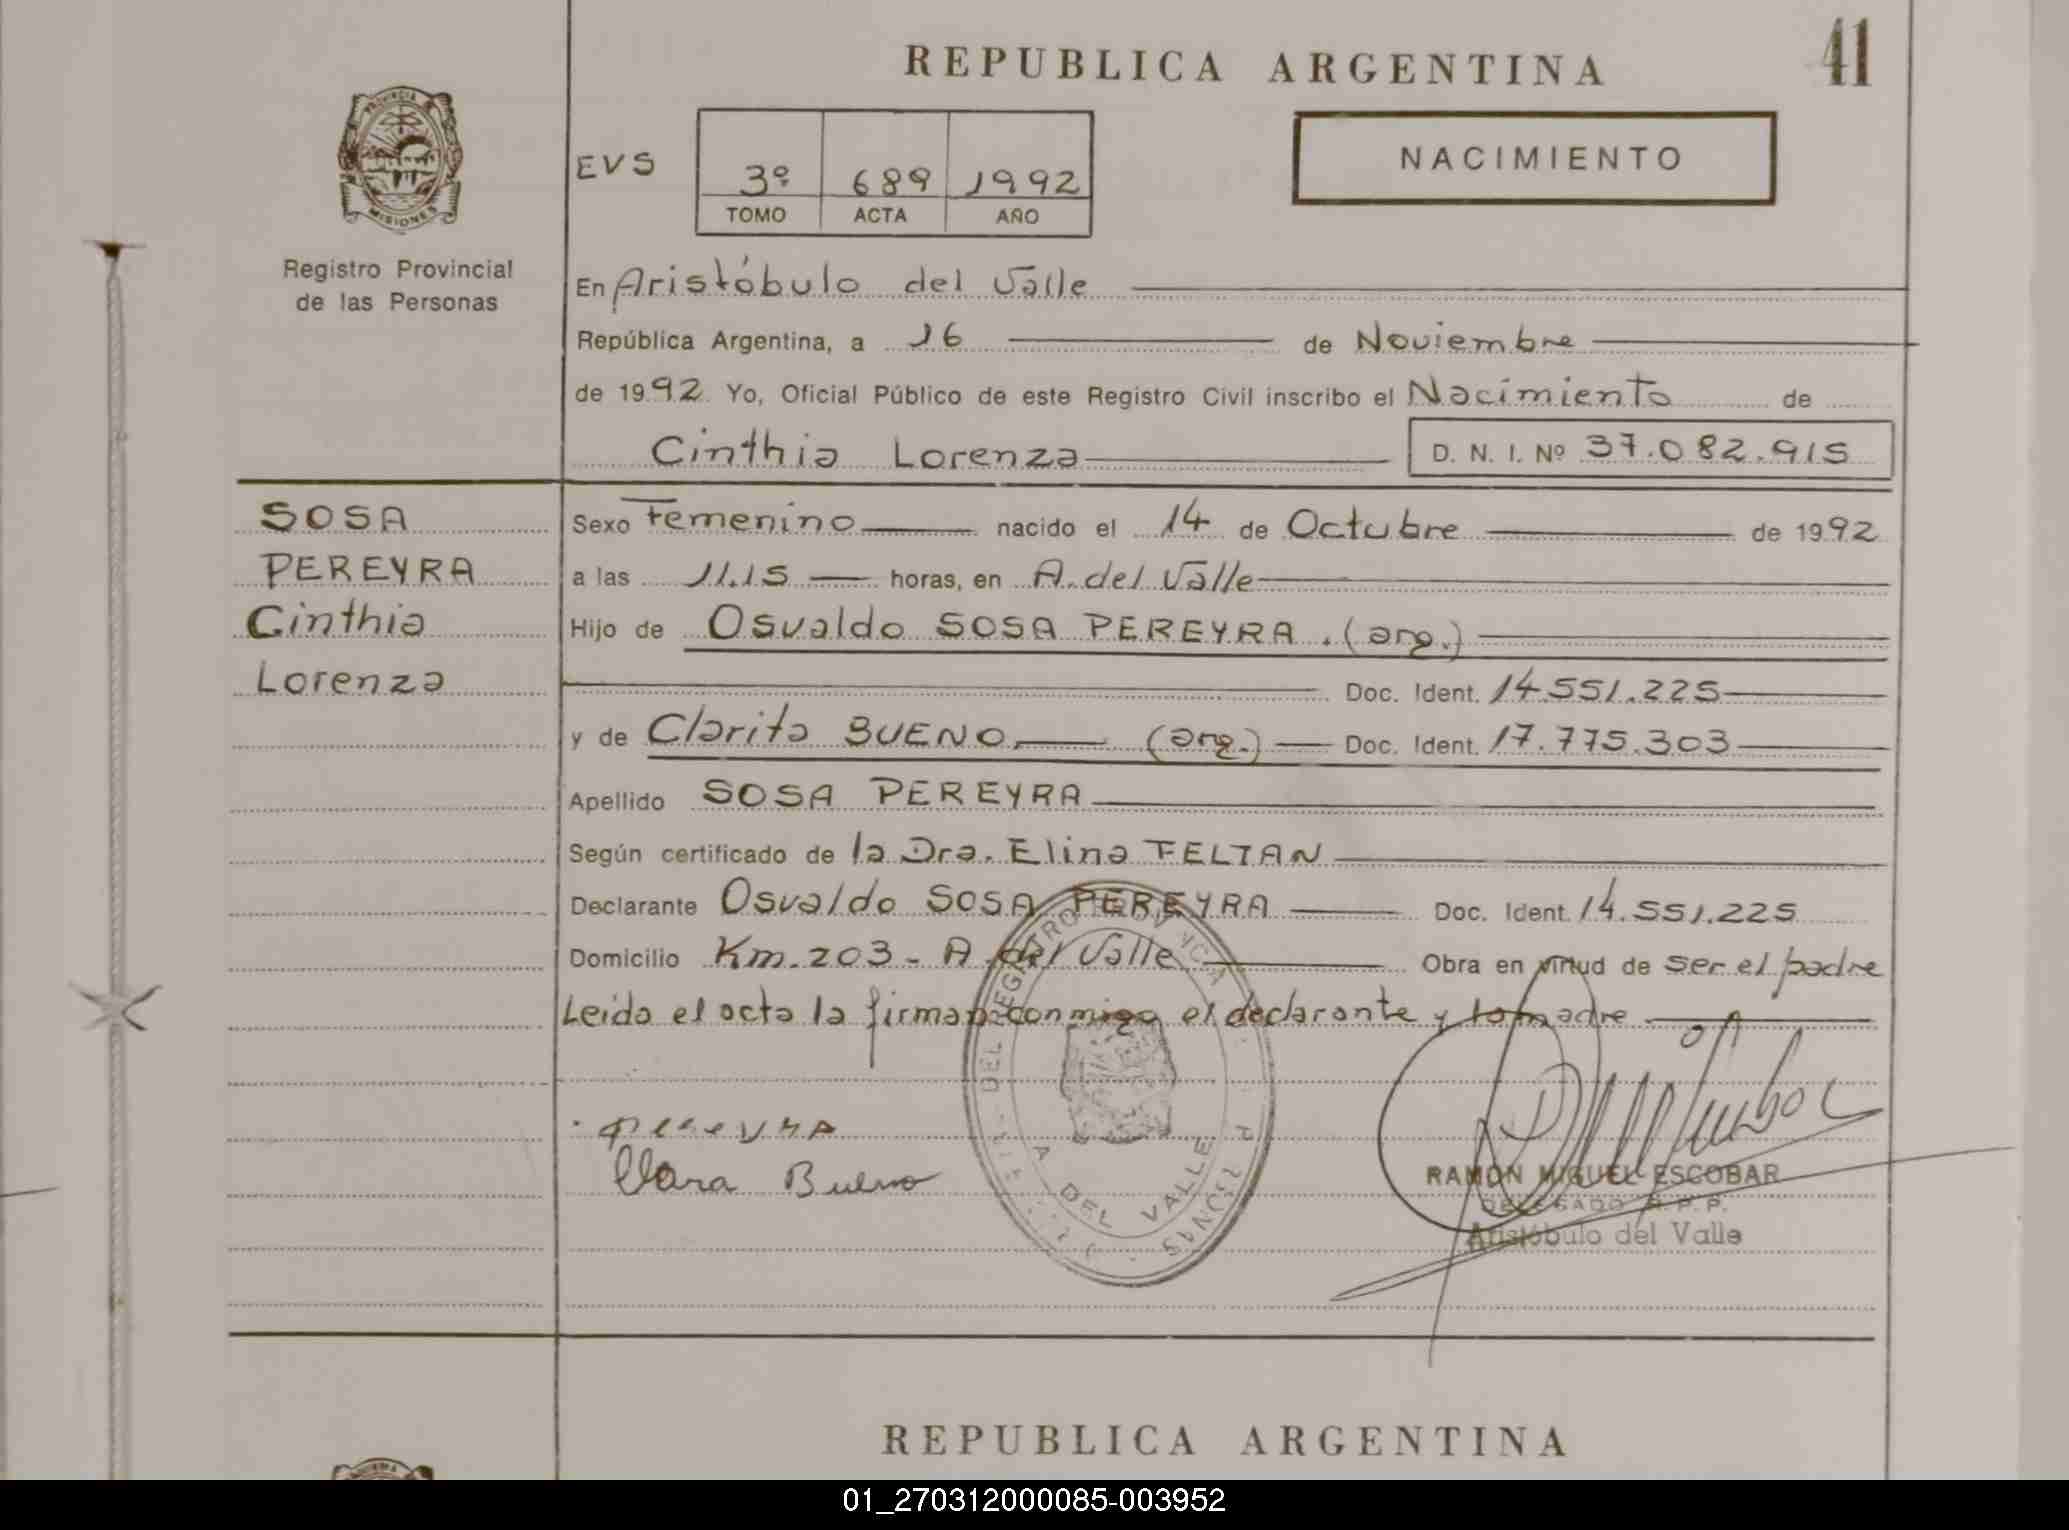 REPUBLICA ARGENTINA
41
PROVINCIA DE
MISIONES
Registro Provincial
de las Personas
EVS
3º 689 1992
TOMO ACTA AÑO
NACIMIENTO
En Aristóbulo del Valle
República Argentina, a 16 de Noviembre
de 1992 Yo, Oficial Público de este Registro Civil inscribo el Nacimiento de
Cinthia Lorenza D. N. I. Nº 37.082.915
SOSA
PEREYRA
Cinthia
Lorenza
Sexo Femenino nacido el 14 de Octubre de 1992
a las 11.15 horas, en A. del Valle
Hijo de Osvaldo SOSA PEREYRA. (arg.)
Doc. Ident. 14.551.225
y de Clarita BUENO. (arg.) Doc. Ident. 17.775.303
Apellido SOSA PEREYRA
Según certificado de la Dra. Elina FELTAN
Declarante Osvaldo SOSA PEREYRA Doc. Ident. 14.551.225
Domicilio Km. 203 - A. del Valle Obra en virtud de ser el padre
Leida el acta la firman conmigo el declarante y la madre
DEL REGISTRO PROVINCIAL
A DEL VALLE
MISIONES
Pereyra
Clara Bueno
RAMON MIGUEL ESCOBAR
DELEGADO R. P. P.
Aristóbulo del Valle
REPUBLICA ARGENTINA
01_270312000085-003952